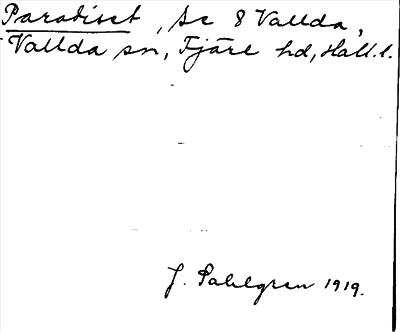 Paradiset, Sc 8 Vallda,
Vallda sn, Fjäre hd, Hall.l.
J. Sahlgren 1919.